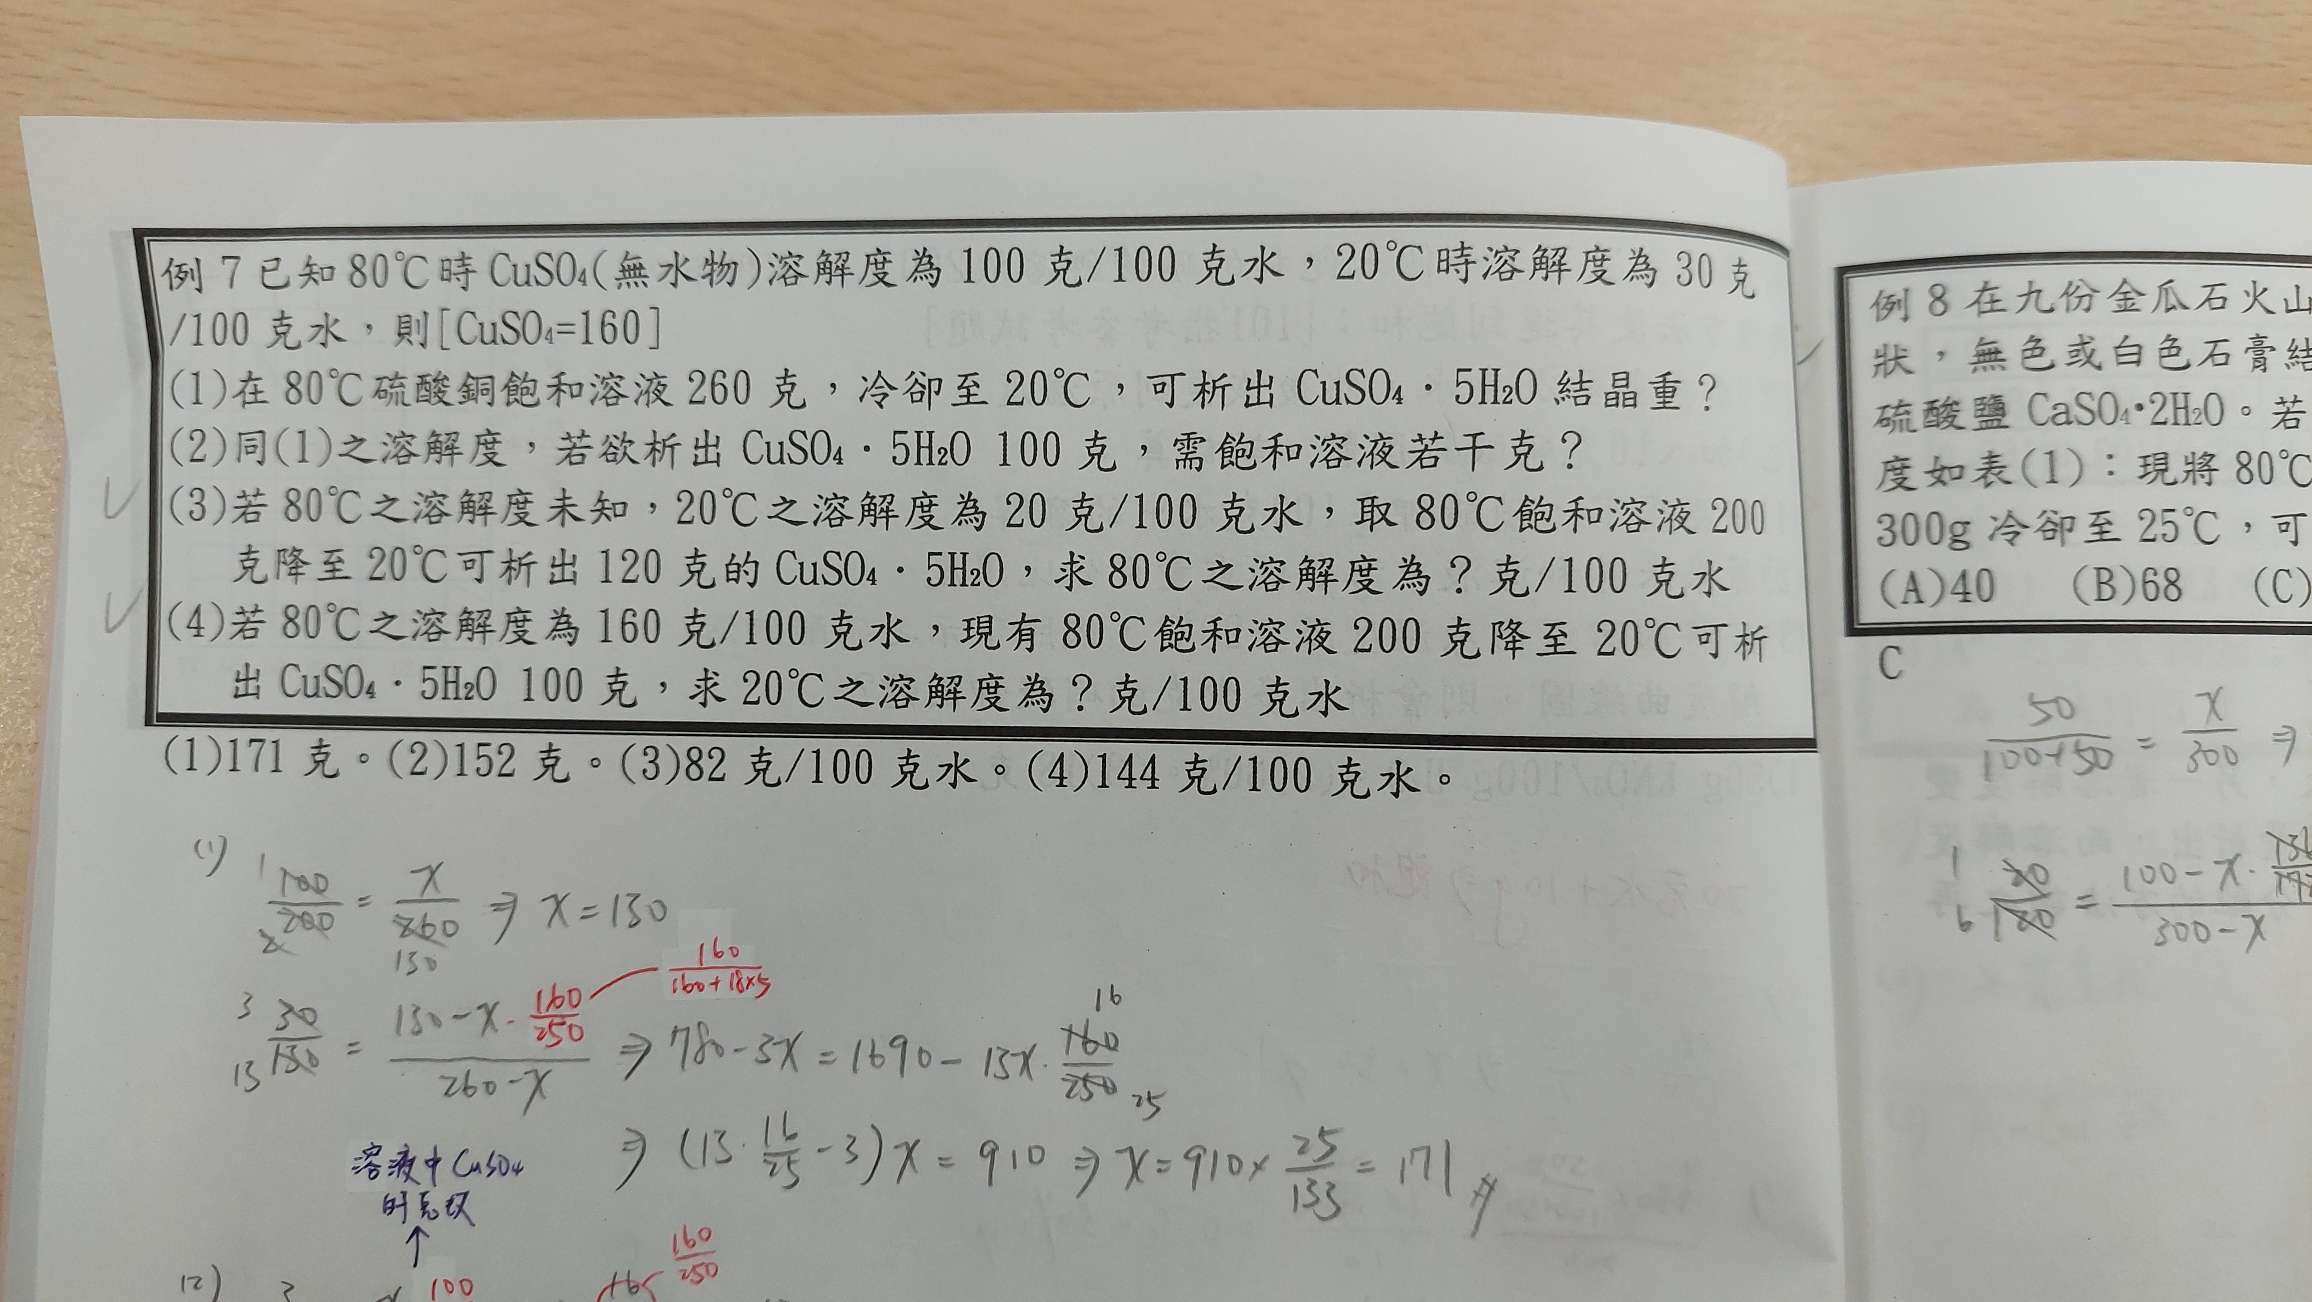 例 7 已知 80℃時 CuSO₄(無水物)溶解度為 100 克/100 克水，20℃時溶解度為 30 克
/100 克水，則[CuSO₄=160]
(1)在 80℃硫酸銅飽和溶液 260 克，冷卻至 20℃，可析出 CuSO₄．5H₂O 結晶重？
(2)同(1)之溶解度，若欲析出 CuSO₄．5H₂O 100 克，需飽和溶液若干克？
(3)若 80℃之溶解度未知，20℃之溶解度為 20 克/100 克水，取 80℃飽和溶液 200
克降至 20℃可析出 120 克的 CuSO₄．5H₂O，求 80℃之溶解度為？克/100 克水
(4)若 80℃之溶解度為 160 克/100 克水，現有 80℃飽和溶液 200 克降至 20℃可析
出 CuSO₄．5H₂O 100 克，求 20℃之溶解度為？克/100 克水
(1)171 克。(2)152 克。(3)82 克/100 克水。(4)144 克/100 克水。
(1) 1 100/200 2 = x/260 130 ⇒ x=130
160/(160+18×5)
3 30/130 13 = (130-x·160/250)/(260-x) ⇒ 780-3x=1690-13x·160/250 16 25
⇒ (13·16/25-3)x=910 ⇒ x=910×25/133=171 #
溶液中CuSO₄
的克數
↑
160/250
(2) 3
100
例 8 在九份金瓜石火山
狀，無色或白色石膏結
硫酸鹽 CaSO₄•2H₂O。若
度如表(1)：現將 80℃
300g 冷卻至 25℃，可
(A)40 (B)68 (C)
C
50/(100+50) = x/300 ⇒
1 20/120 6 = 100-x·
300-x